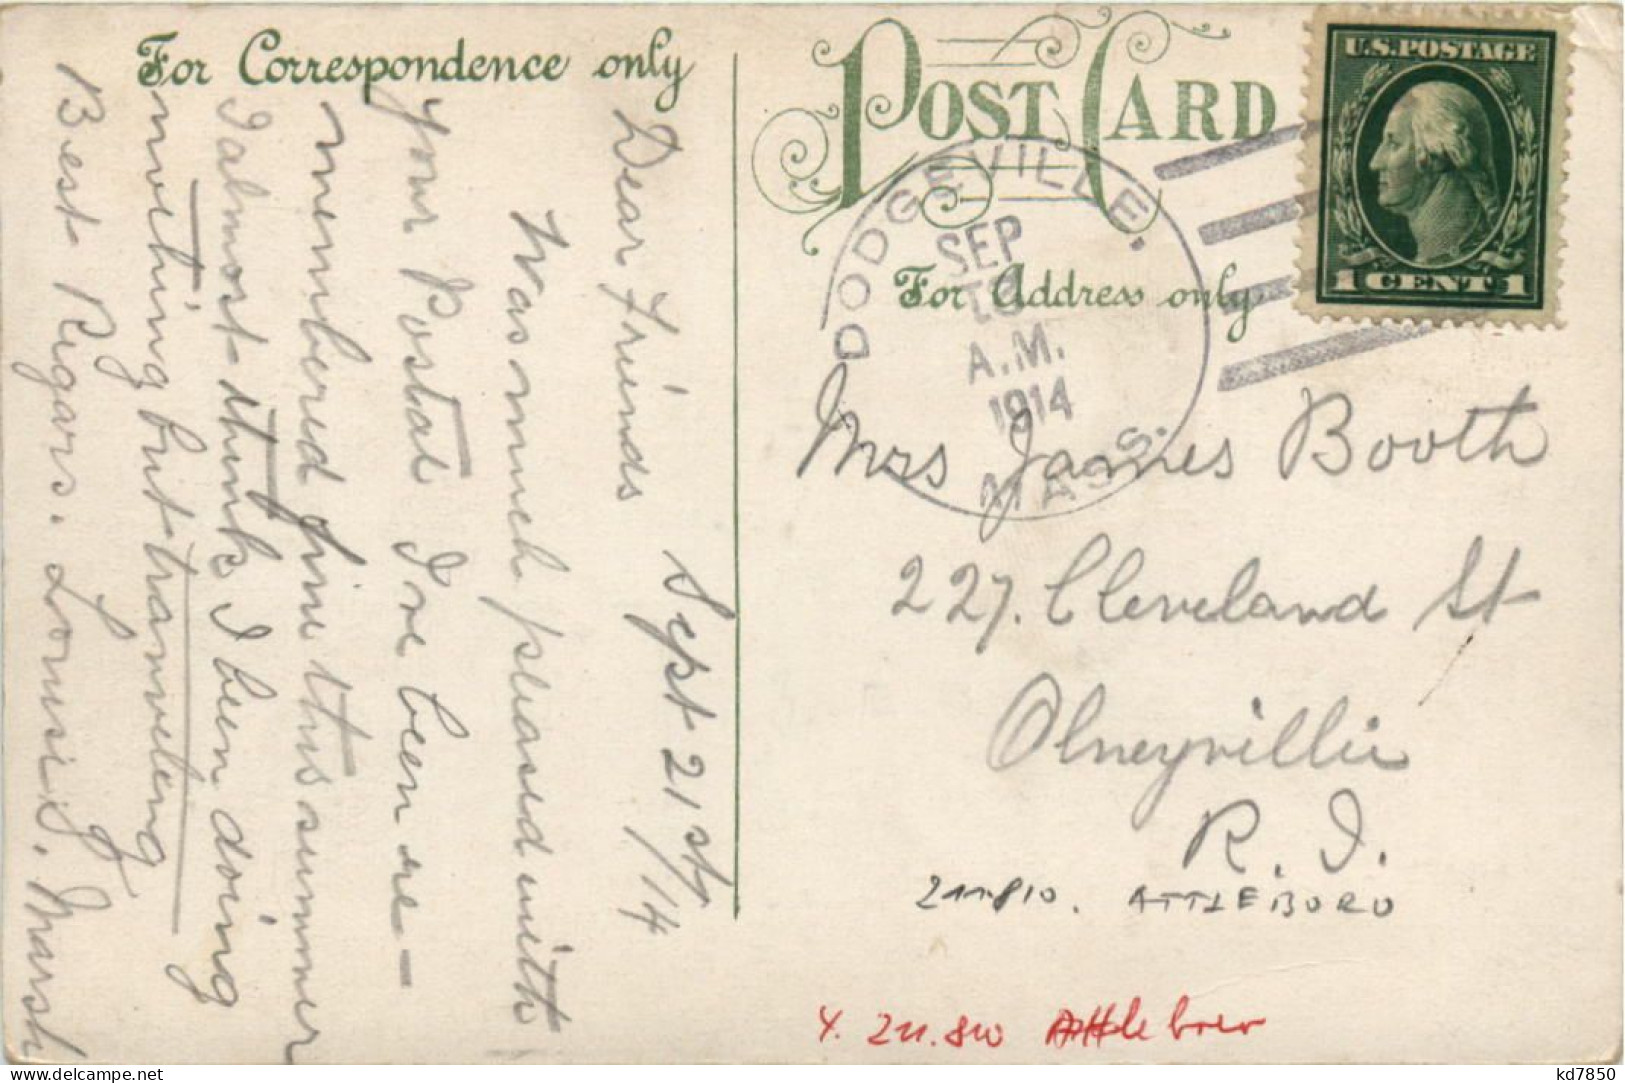 For Correspondence only
POST CARD
U.S. POSTAGE
1 CENT 1
For Address only
DODGEVILLE,
SEP
A.M.
1914
MASS.
Sept 21st/14
Dear Friends
Was much pleased with
Your Postal I've been re-
membered fine this summer
I almost think I been doing
nothing but tranveling
Best Regars. Louis, Marsh
Mrs James Booth
227. Cleveland St
Olneyville
R. I.
211.810. ATTLEBORO
Y. 211.810 Attleboro
kd7850